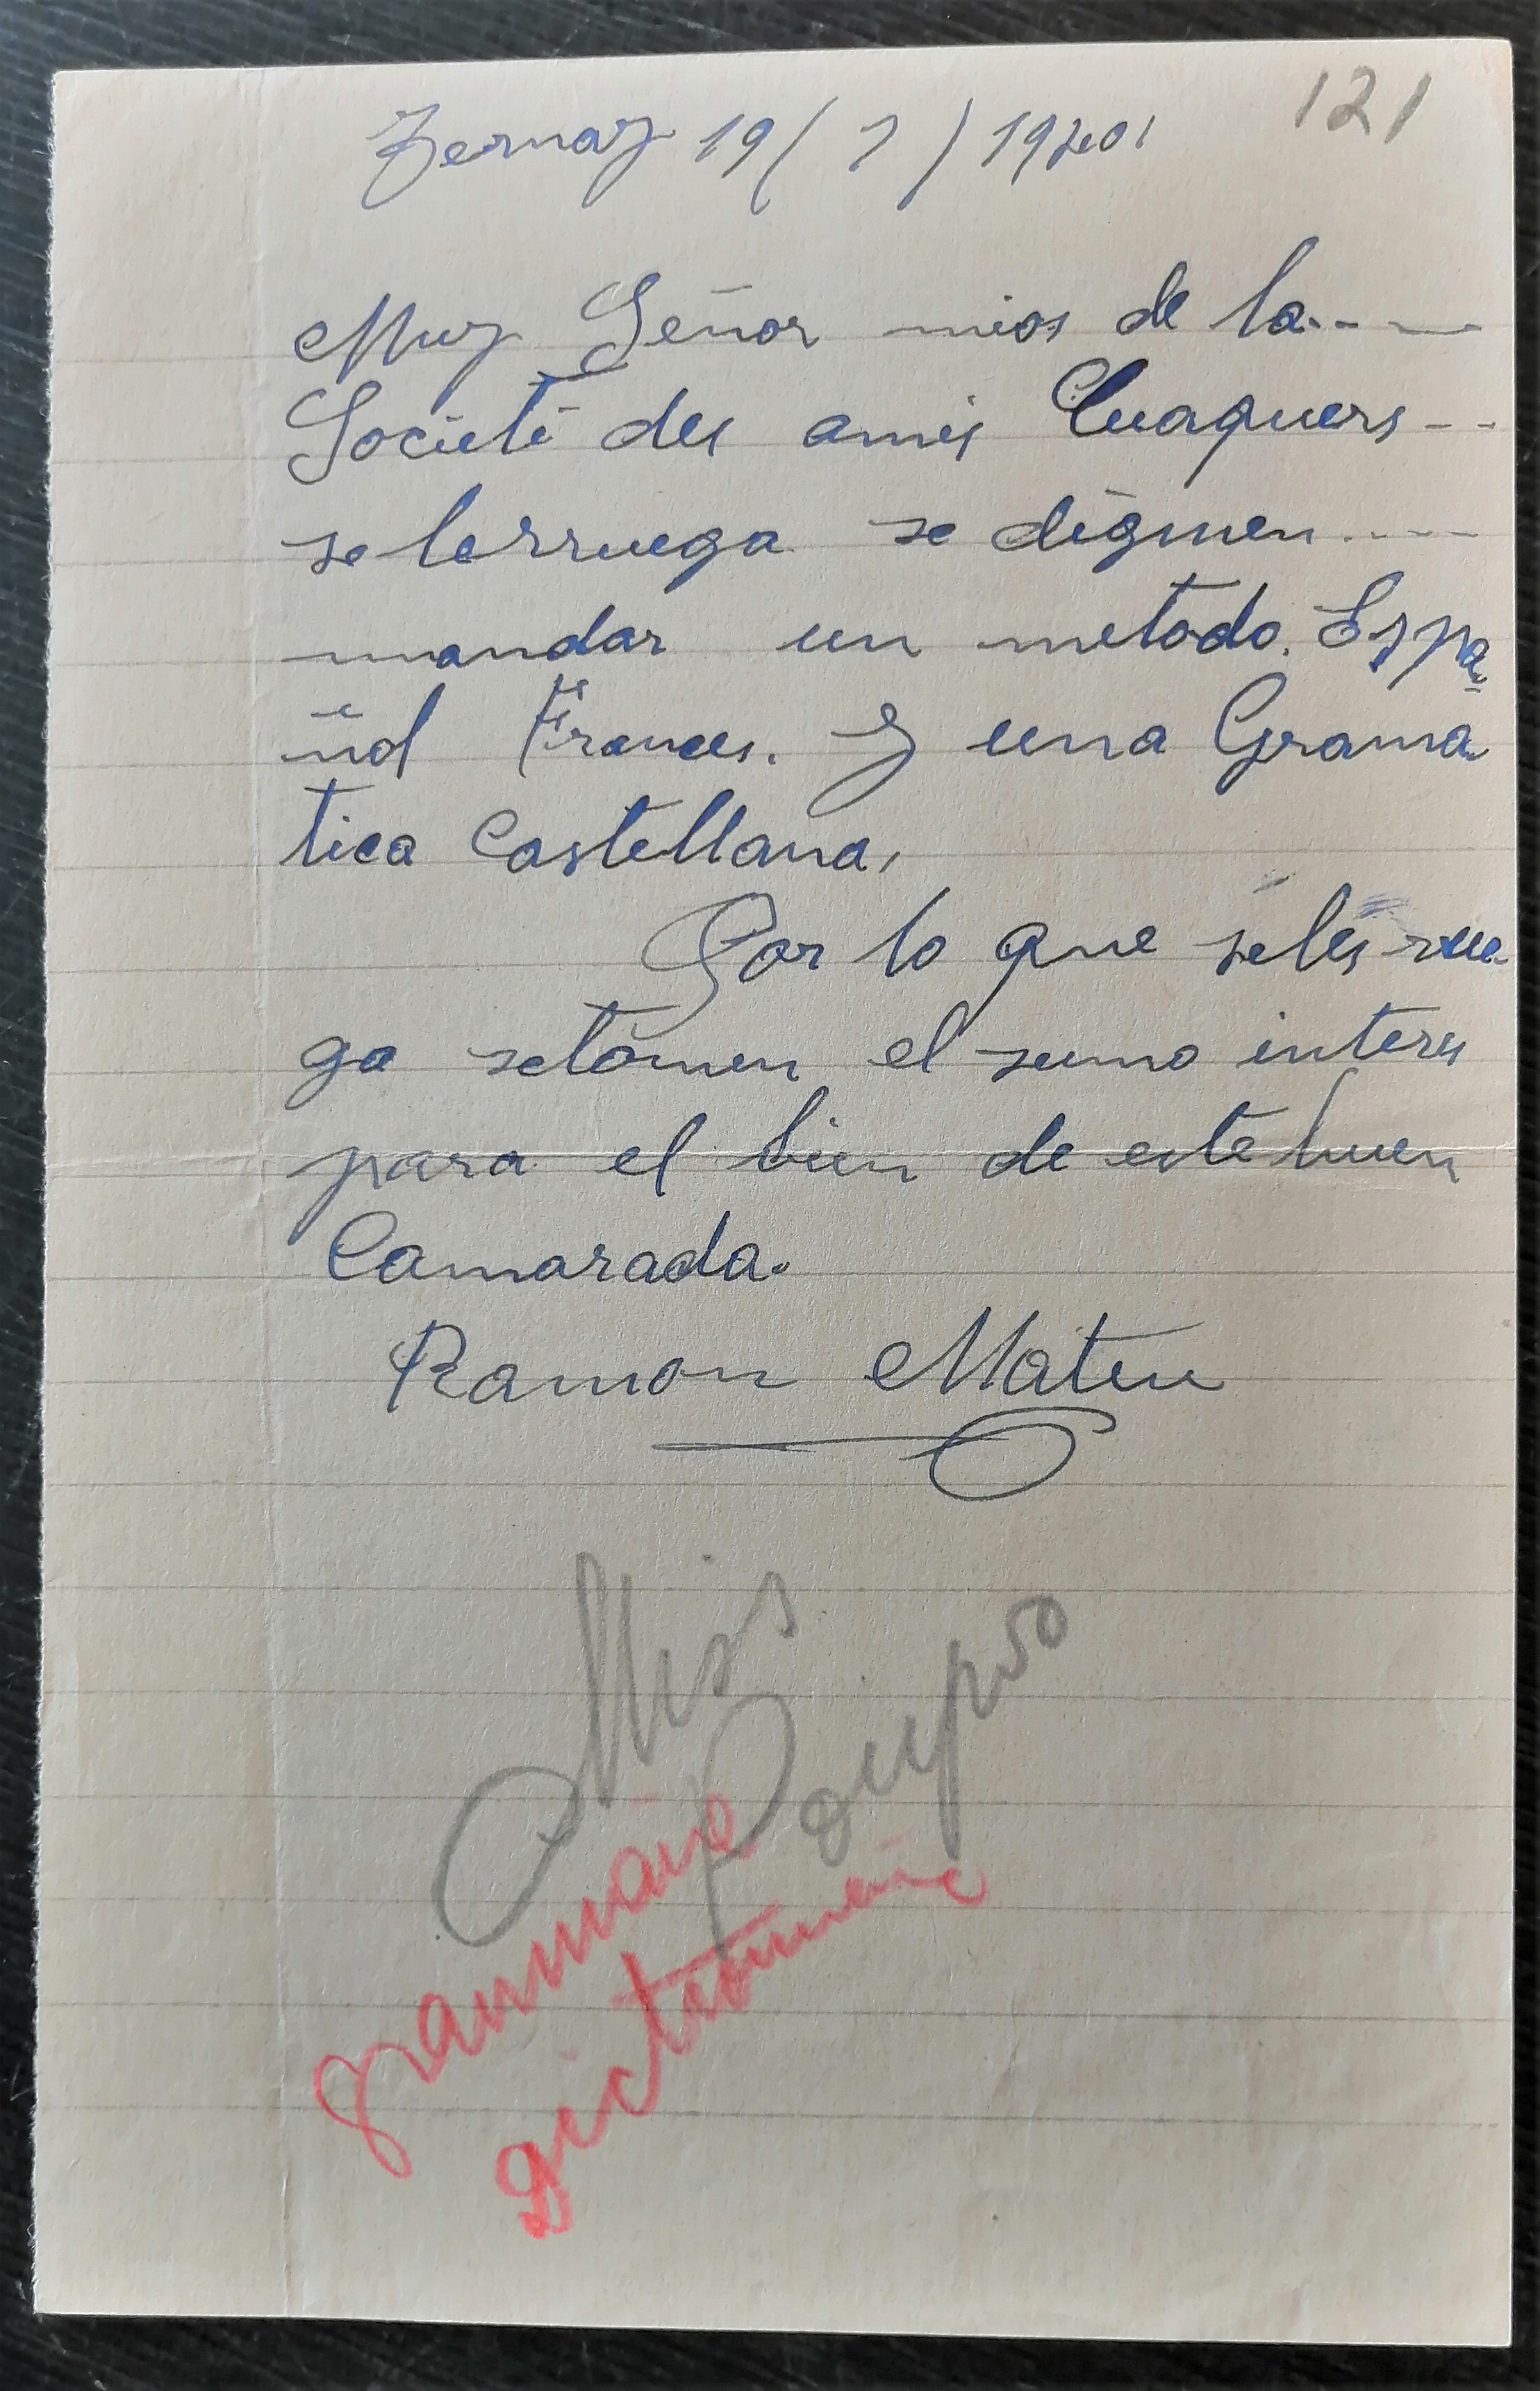 121
19/1/1940
Muy Señor mios de la----
Societé des amis Cuaquers--
se lerruega se dignen----
mandar un metodo. Espa-
ñol Frances. Y una Grama-
tica Castellana,
Por lo que seles rue-
ga setomen el sumo interes
para el bien de este buen
Camarada.
Ramon Mateu
Miss
grammaire
dictionnaire